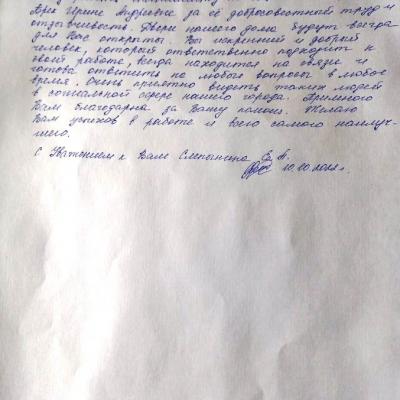 Ирине Андреевне за её добросовестный труд и
отзывчивость. Двери нашего дома будут всегда
для Вас открыты. Вы искренний и добрый
человек, который ответственно подходит к
своей работе, всегда находится на связи и
готова ответить на любые вопросы в любое
время. Очень приятно видеть таких людей
в социальной сфере нашего города. Премного
Вам благодарна за Вашу помощь. Желаю
Вам успехов в работе и всего самого наилуч-
шего.
С Уважением к Вам